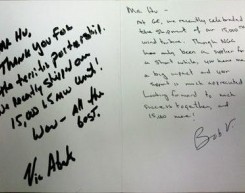 Mr Hu,
Thank you for
the terrific partnership.
We recently shipped our
15,000 1.5 MW unit!
Wow - All the
best.
Vic Abate
Mr. Hu -
At GE, we recently celebrated
the shipment of our 15,000
wind turbine. Though
has only been our partner for
a short while, you have made
a big impact and your
support is much appreciated
Looking forward to much
success together, and
15,000 more!
Bob V.